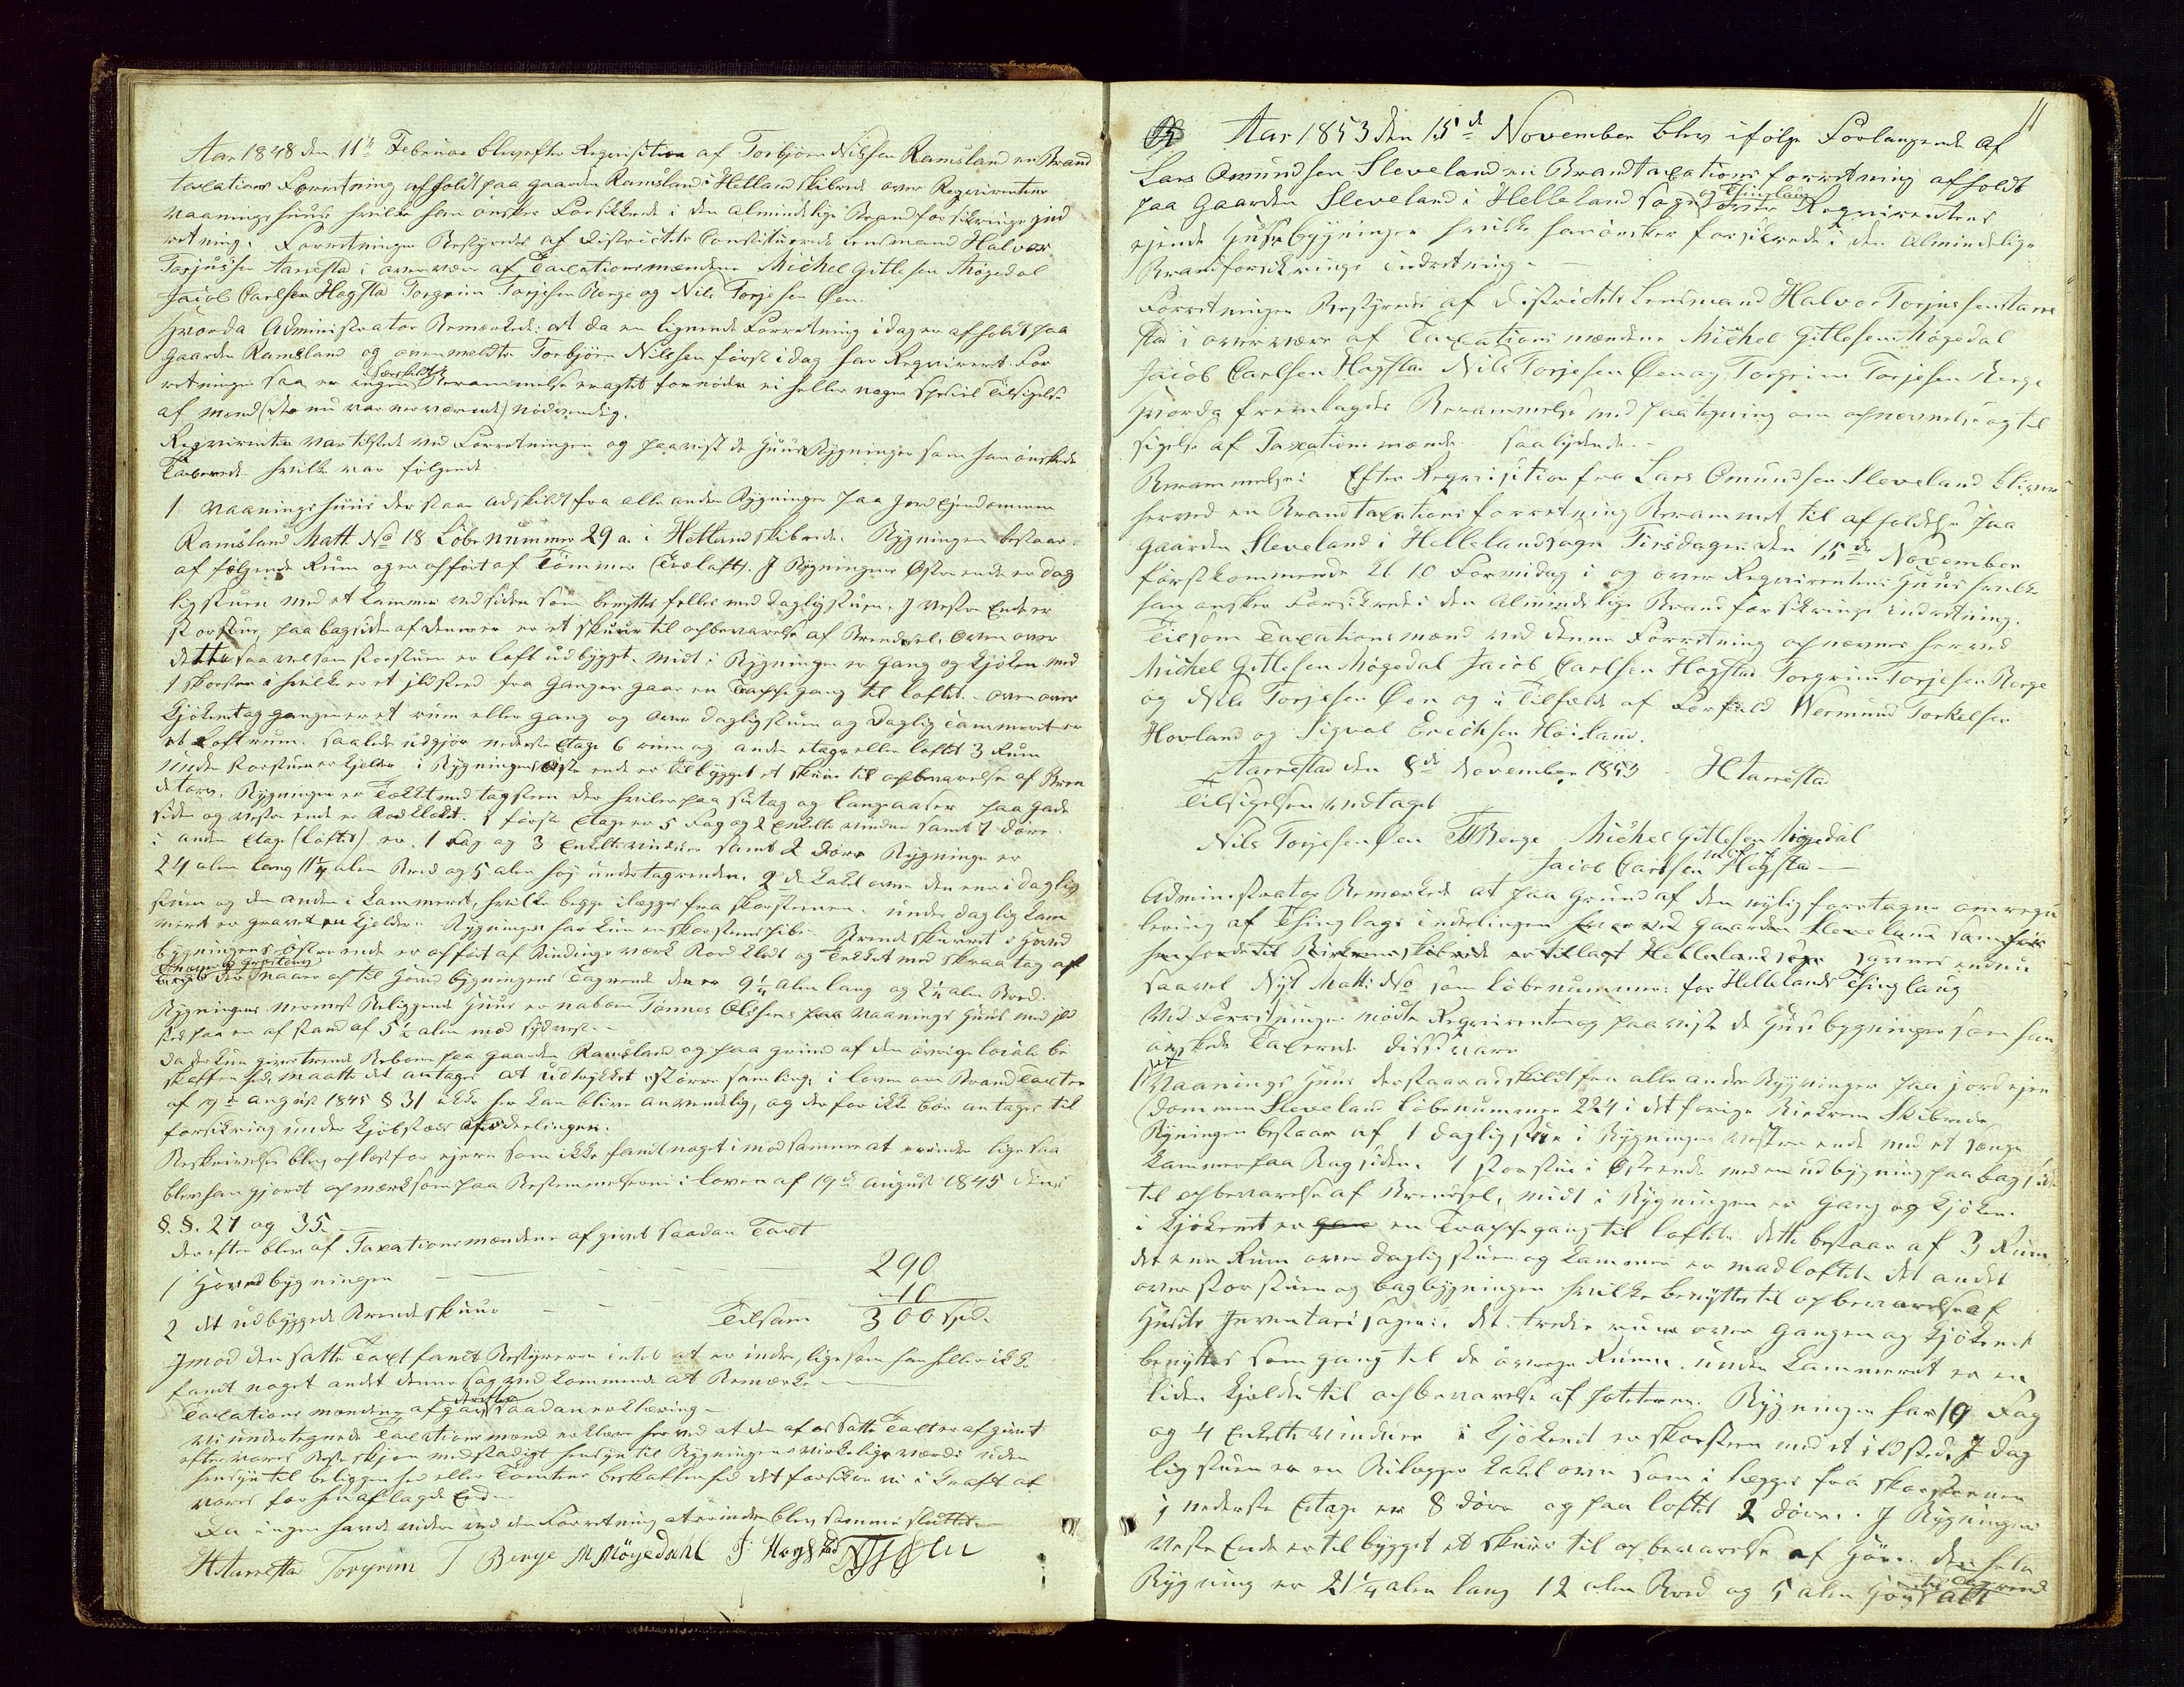 Aar 1848 den 11te Februar blev efter Reqvisition af Torbjørn Nilssen Ramsland en Brand
taxations Forretning afholdt paa Gaarden Ramsland i Hetland skibrede over Reqvirentens
vaaningshuus hvilke han ønsker Forsikkrede i den almindelige Brandforsikrings Jnd
retning. Forretningen Bestyredes af Districtets Constituerede Lensmand Halvor
Torjussen Aarrestad i overvær af Taxationsmændene Michel Gitlesen Møgedal
Jacob Carlsen Hogstad Torgrim Torjesen Berge og Nils Torjesen Øen.
Hvorda Administrator Bemærkede: at da en lignende Forretning idag er afholdt paa
Gaarden Ramsland og ovenmeldte Torbjørn Nilssen først idag har Reqvireret For
retningen saa er ingen særskildt Berammelse eragtet fornøden ei heller nogen speciel Tilsigelse
af mænd (der nu var nærværende) nødvendig.
Reqvirenten var tilstede ved Forretningen og paaviste de Huus Bygninger som han ønskede
Taxerede hvilke var følgende.
1 Vaaningshuus der staar adskildt fra alle andre Bygninger paa Jord Ejendommen
Ramsland Matt No 18 Løbenummer 29 a. i Hetland skibrede. Bygningen bestaar
af følgende Rum og er opført af Tømmer (Trælaft). J Bygningens Østre ende er dag
ligstuen med et kammer ved siden som benyttes felles med Dagligstuen. J Vestre Ende er
storstue, paa bagsiden af denne er et skuur til opbevarelse af Brendsel. Oven over
dette saavelsom storstuen er loft udbygget. midt i Bygningen er Gang og kjøken med
1 skorsten i hvilke er et jldsted fra Gangen gaar en Trappegang til loftet. oven over
kjøkenet og gangen er et rum eller gang og over dagligstuen og Daglig cammeret er
et Loftrum. saalede udgjør nederste Etage 6 rum og anden etage eller loftet 3 Rum
Under storstuen er kjelder i Bygningens Østre ende er tilbygget et skuur til opbevarelse af Bren
detorv. Bygningen er Tækket med tagsteen der hviler paa sutag og langaaser paa Gade
siden og vestre ende er Bordklædt. I første Etage er 5 Fag og 2 enkelte vinduer samt 7 døre.
i anden Etage (loftet) er 1 Fag og 3 Enkelte vinduer samt 2 Døre Bygningen er
24 alen lang 11¼ alen Bred og 5 alen høj under tagrenden. 2de kakelovne den ene i daglig
stuen og den anden i kammeret, hvilke begge ilægges fra skorstenen. under daglig kam
meret er gravet en kjelder. Bygningen har kun en skorstenspibe. Brendeskuuret i Hoved
bygningens Østre ende er opført af Bindingsværk Bordklædt og Tækket med skraatag af
der naaer op til Hoved bygningens Tagrende den er 9¼ alen lang og 2¼ alen Bred.
Bygningens nærmest Beliggende Huus er naboen Tønnes Olsens paa Vaanings Huus med jld
sted paa en afstand af 5½ alen mod sydvest.
da der kun gives trende Beboere paa Gaarden Ramsland og paa grund af den øvrige locale be
skaffenhed, maatte det antages at udtrykket større samling i loven om Brand Taxter
af 19de august 1845 § 31 ikke her kan blive anvendelig, og derfor ikke bør antages til
forsikring under kjøbstæds afdeelingen.
Beskrivelsen blev oplæst for ejeren som ikke fandt noget imod samme at erindre ligesaa
blev han gjort opmærksom paa Bestemmelserne i loven af 19de august 1845 dens
§. §. 27 og 35.
derefter blev af Taxationsmændene afgivet saadan Taxt
1 Hovedbygningen — — — — 290
2 det udbyggede Brendeskuur — — — 10
Tilsam 300 spd.
Jmod den satte Taxt fandt Bestyreren intet at erindre, ligesom han heller ikke
fandt noget andet denne sag ved kommende at Bemærke
Taxationsmændene afgav derefter saadan erklæring
Vi undertegnede Taxationsmænd erklære herved at den af os satte Taxt er afgivet
efter vores Beste skjøn med stadigt hensyn til Bygningens virkelige værdi uden
hensyn til beliggenhed eller Tomtens beskaffenhed det forsikre vi i kraft af
vores forhen aflagde Eed.
Da ingen havde videre ved den Forretning at erindre blev samme sluttet.
HAarrestad Torgrim T Berge M Møgedahl J: Hogstad NTSØen
11
Aar 1853 den 15de November blev ifølge Forlangende af
Lars Omundsen Sleveland en Brandtaxations forretning afholdt
paa Gaarden Sleveland i Helleland sogn og Thinglaug over Reqvirentens
ejende Huse bygninger hvilke han ønsker forsikrede i den Almindelige
Brandforsikrings indretning.
Forretningen Bestyredes af Districtets Lensmand Halvor Torjussen Aarre
stad i overvære af Taxationsmændene Michel Gitlesen Møgedal
Jacob Carlsen Hogstad Nils Torjesen Øen og Torgrim Torjesen Berge
Hvorda fremlagdes Berammelse med paategning om opnævnelse og til
sigelse af Taxationsmænde saalydende.
Berammelse: Efter Reqvisition fra Lars Omundsen Sleveland bliver
herved en Brandtaxations forretning Berammet til afholdelse paa
Gaarden Sleveland i Hellelandsogn Tirsdagen den 15de November
førstkommende kl 10 Formidag i og over Reqvirentens Huus hvilke
han ønsker Forsikrede i den Almindelige Brandforsikrings indretning.
Til som Taxationsmænd ved denne Forretning opnævnes herved
Michel Gitlesen Møgedal Jacob Carlsen Hogstad Torgrim Torjesen Berge
og Nils Torjesen Øen og i Tilfælde af Forfald Wermund Torkelsen
Hovland og Sigval Erichsen Høiland.
Aarrestad den 8de November 1853 HAarrestad
Tilsigelsen modtaget
Nils Torjesen Øen TTBerge Michel Gitlesen Møgedal
Jacob Carlsen Hogstad
Administrator Bemærkede at paa Grund af den nylig foretagne omregu
lering af Thinglags inddelingen hvorved Gaarden Sleveland som før
henhørde til Birkrem skibrede er tillagt Helleland sogn savnes endnu
saavel Nyt Matt: No som løbenummer: for Hellelands Thinglaug
Ved Forretningen mødte Reqvirenten og paaviste de Huse bygninger som han
ønskede Taxerede disse vare
1 Vaanings Huus der staar adskildt fra alle andre Bygninger paa jordejen
dommen Sleveland løbenummer 224 i det forrige Birkrem Skibrede
Bygningen bestaar af 1 dagligstue i Bygningens vestre ende med et senge
kammer paa Bagsiden. 1 storstue i Østre ende med en udbygning paa bagside
til opbevarelse af Brendsel, midt i Bygningen er Gang og kjøken.
i kjøkenet er en Trappegang til loftet. dette bestaar af 3 Rum.
det ene Rum over dagligstuen og kammer er madloftet. det andet
over storstuen og bagbygningen hvilke benyttes til opbevarelse af
Husets Jnventari sager: det tredie rum over Gangen og kjøkenet
benyttes som gang til de øvrige Rumme. under kammeret er en
liden kjelder til opbevarelse af poteter. Bygningen har 10 Fag
og 4 Enkelte vinduer i kjøkenet er skorsten med et ildsted. J dag
ligstuen er en Bilægger kakelovn som i lægges fra skorstenen
i nederste Etage er 8 døre og paa loftet 2 døre. J Bygningens
vestre Ende er tilbygget et skuur til opbevarelse af Høe. den hele
Bygning er 21¼ alen lang 12 alen Bred og 5 alen høj